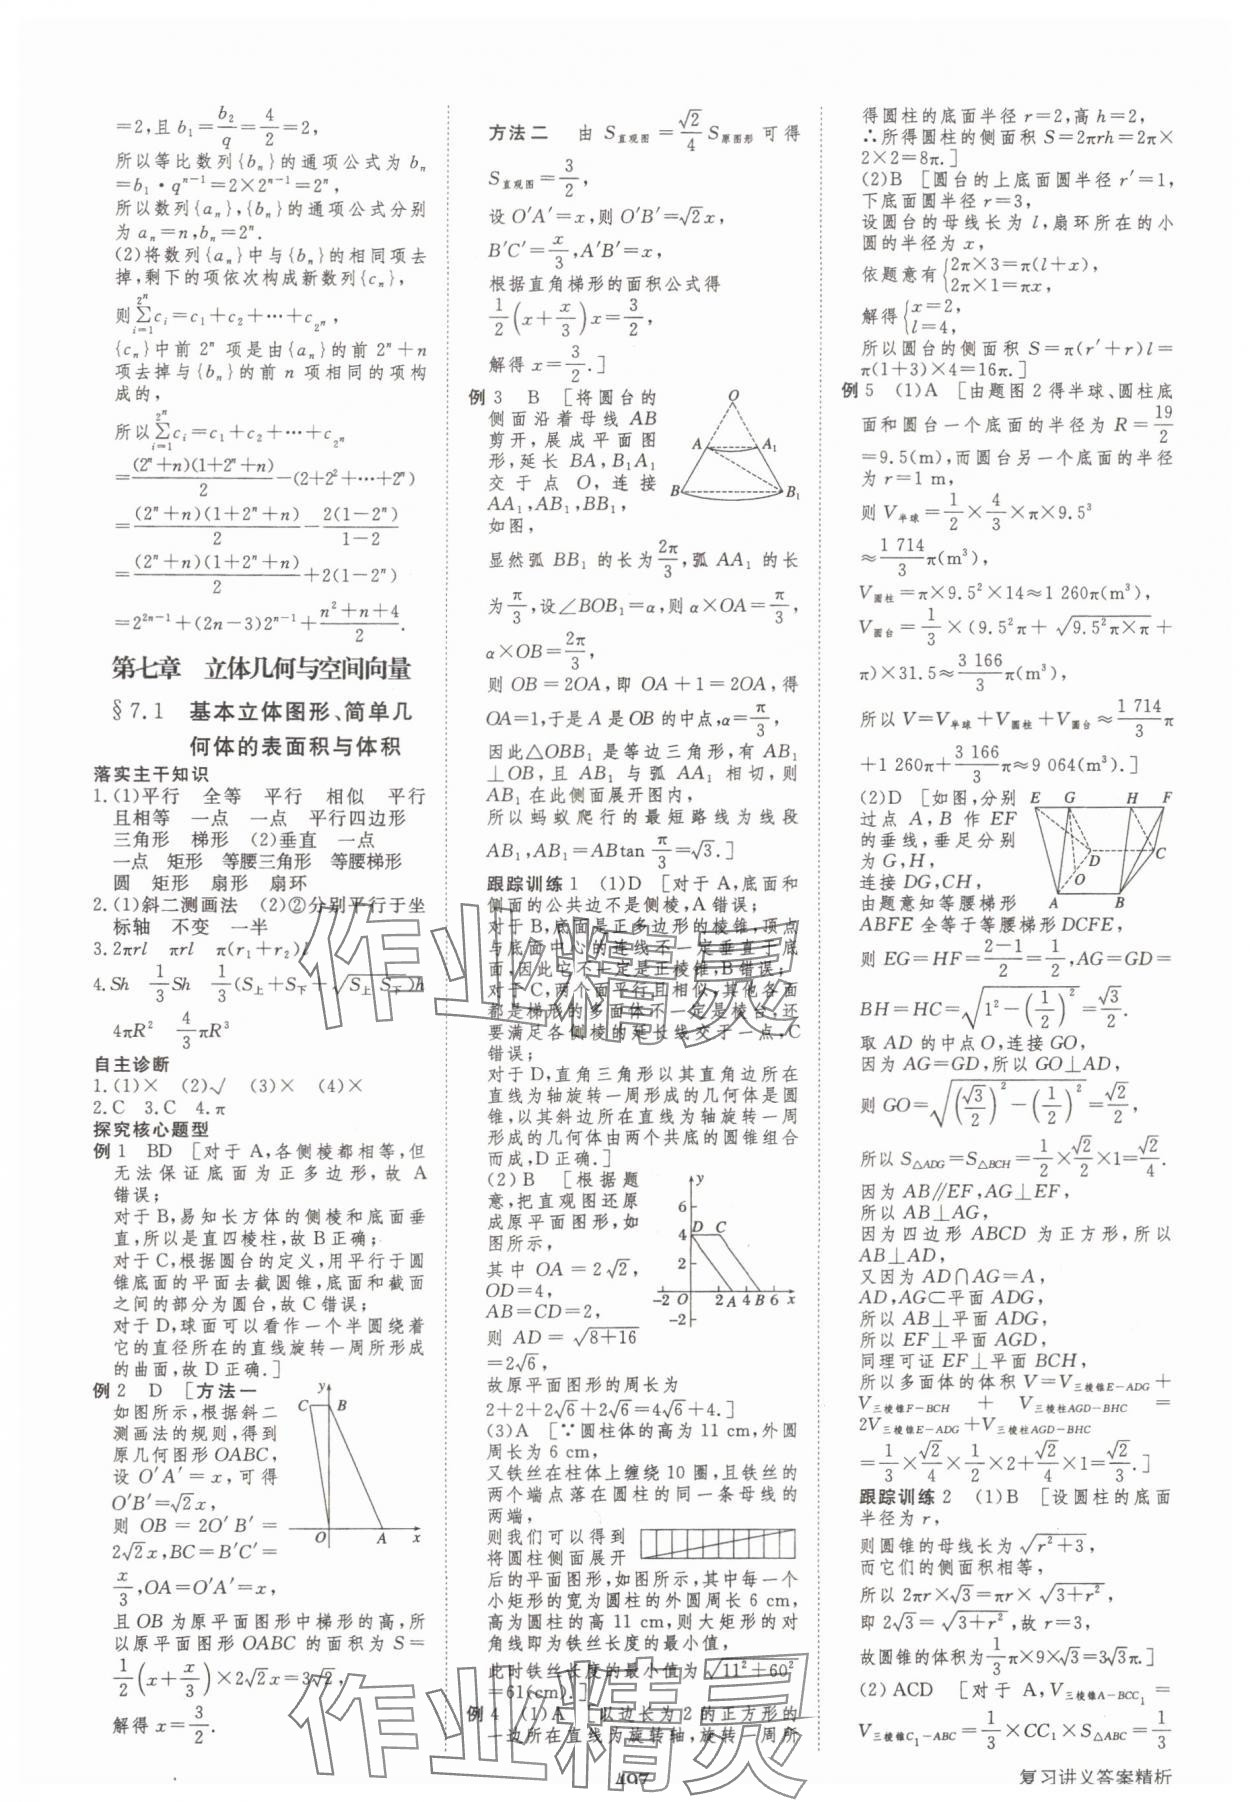 =2,且 b₁=b₂/q=4/2=2,
所以等比数列{bₙ}的通项公式为 bₙ
=b₁·qⁿ⁻¹=2×2ⁿ⁻¹=2ⁿ,
所以数列{aₙ},{bₙ}的通项公式分别
为 aₙ=n,bₙ=2ⁿ.
(2)将数列{aₙ}中与{bₙ}的相同项去
掉,剩下的项依次构成新数列{cₙ},
则∑(i=1→2ⁿ)cᵢ=c₁+c₂+⋯+c_{2ⁿ},
{cₙ}中前 2ⁿ 项是由{aₙ}的前 2ⁿ+n
项去掉与{bₙ}的前 n 项相同的项构
成的,
所以∑(i=1→2ⁿ)cᵢ=c₁+c₂+⋯+c_{2ⁿ}
=(2ⁿ+n)(1+2ⁿ+n)/2-(2+2²+⋯+2ⁿ)
=(2ⁿ+n)(1+2ⁿ+n)/2-2(1-2ⁿ)/(1-2)
=(2ⁿ+n)(1+2ⁿ+n)/2+2(1-2ⁿ)
=2²ⁿ⁻¹+(2n-3)2ⁿ⁻¹+(n²+n+4)/2.
第七章 立体几何与空间向量
§7.1 基本立体图形、简单几
何体的表面积与体积
落实主干知识
1.(1)平行 全等 平行 相似 平行
且相等 一点 一点 平行四边形
三角形 梯形 (2)垂直 一点
一点 矩形 等腰三角形 等腰梯形
圆 矩形 扇形 扇环
2.(1)斜二测画法 (2)②分别平行于坐
标轴 不变 一半
3.2πrl πrl π(r₁+r₂)l
4.Sh 1/3Sh 1/3(S上+S下+√(S上S下))h
4πR² 4/3πR³
自主诊断
1.(1)× (2)√ (3)× (4)×
2.C 3.C 4.π
探究核心题型
例 1 BD [对于 A,各侧棱都相等,但
无法保证底面为正多边形,故 A
错误;
对于 B,易知长方体的侧棱和底面垂
直,所以是直四棱柱,故 B 正确;
对于 C,根据圆台的定义,用平行于圆
锥底面的平面去截圆锥,底面和截面
之间的部分为圆台,故 C 错误;
对于 D,球面可以看作一个半圆绕着
它的直径所在的直线旋转一周所形成
的曲面,故 D 正确.]
例 2 D [方法一
如图所示,根据斜二
测画法的规则,得到
原几何图形 OABC,
设 O′A′=x,可得
O′B′=√2x,
则 OB=2O′B′=
2√2x,BC=B′C′=
x/3,OA=O′A′=x,
y
C B
O A x
且 OB 为原平面图形中梯形的高,所
以原平面图形 OABC 的面积为 S=
1/2(x+x/3)×2√2x=3√2,
解得 x=3/2.
方法二 由 S直观图=√2/4 S原图形 可得
S直观图=3/2,
设 O′A′=x,则 O′B′=√2x,
B′C′=x/3,A′B′=x,
根据直角梯形的面积公式得
1/2(x+x/3)x=3/2,
解得 x=3/2.]
例 3 B [将圆台的
侧面沿着母线 AB
剪开,展成平面图
形,延长 BA,B₁A₁
交于点 O,连接
AA₁,AB₁,BB₁,
如图,
O
A A₁
B B₁
显然弧 BB₁ 的长为2π/3,弧 AA₁ 的长
为π/3,设∠BOB₁=α,则 α×OA=π/3,
α×OB=2π/3,
则 OB=2OA,即 OA+1=2OA,得
OA=1,于是 A 是 OB 的中点,α=π/3,
因此△OBB₁ 是等边三角形,有 AB₁
⊥OB,且 AB₁ 与弧 AA₁ 相切,则
AB₁ 在此侧面展开图内,
所以蚂蚁爬行的最短路线为线段
AB₁,AB₁=ABtan π/3=√3.]
跟踪训练 1 (1)D [对于 A,底面和
侧面的公共边不是侧棱,A 错误;
对于 B,底面是正多边形的棱锥,顶点
与底面中心的连线不一定垂直于底
面,因此它不一定是正棱锥,B 错误;
对于 C,两个面平行且相似,其他各面
都是梯形的多面体不一定是棱台,还
要满足各侧棱的延长线交于一点,C
错误;
对于 D,直角三角形以其直角边所在
直线为轴旋转一周形成的几何体是圆
锥,以其斜边所在直线为轴旋转一周
形成的几何体由两个共底的圆锥组合
而成,D 正确.]
(2)B [根据题
意,把直观图还原
成原平面图形,如
图所示,
其中 OA=2√2,
OD=4,
AB=CD=2,
则 AD=√(8+16)
=2√6,
y
6
4 D C
2
-2 O 2 A 4 B 6 x
-2
故原平面图形的周长为
2+2+2√6+2√6=4√6+4.]
(3)A [∵圆柱体的高为 11 cm,外圆
周长为 6 cm,
又铁丝在柱体上缠绕 10 圈,且铁丝的
两个端点落在圆柱的同一条母线的
两端,
则我们可以得到
将圆柱侧面展开
后的平面图形,如图所示,其中每一个
小矩形的宽为圆柱的外圆周长 6 cm,
高为圆柱的高 11 cm,则大矩形的对
角线即为铁丝长度的最小值,
此时铁丝长度的最小值为√(11²+60²)
=61(cm).]
例 4 (1)A [以边长为 2 的正方形的
一边所在直线为旋转轴,旋转一周所
得圆柱的底面半径 r=2,高 h=2,
∴所得圆柱的侧面积 S=2πrh=2π×
2×2=8π.]
(2)B [圆台的上底面圆半径 r′=1,
下底面圆半径 r=3,
设圆台的母线长为 l,扇环所在的小
圆的半径为 x,
依题意有{2π×3=π(l+x),
2π×1=πx,
解得{x=2,
l=4,
所以圆台的侧面积 S=π(r′+r)l=
π(1+3)×4=16π.]
例 5 (1)A [由题图 2 得半球、圆柱底
面和圆台一个底面的半径为 R=19/2
=9.5(m),而圆台另一个底面的半径
为 r=1 m,
则 V半球=1/2×4/3×π×9.5³
≈1 714/3π(m³),
V圆柱=π×9.5²×14≈1 260π(m³),
V圆台=1/3×(9.5²π+√(9.5²π×π)+
π)×31.5≈3 166/3π(m³),
所以 V=V半球+V圆柱+V圆台≈1 714/3π
+1 260π+3 166/3π≈9 064(m³).]
(2)D [如图,分别
过点 A,B 作 EF
的垂线,垂足分别
为 G,H,
连接 DG,CH,
由题意知等腰梯形
E G H F
D C
O
A B
ABFE 全等于等腰梯形 DCFE,
则 EG=HF=(2-1)/2=1/2,AG=GD=
BH=HC=√(1²-(1/2)²)=√3/2.
取 AD 的中点 O,连接 GO,
因为 AG=GD,所以 GO⊥AD,
则 GO=√((√3/2)²-(1/2)²)=√2/2,
所以 S△ADG=S△BCH=1/2×√2/2×1=√2/4.
因为 AB∥EF,AG⊥EF,
所以 AB⊥AG,
因为四边形 ABCD 为正方形,所以
AB⊥AD,
又因为 AD∩AG=A,
AD,AG⊂平面 ADG,
所以 AB⊥平面 ADG,
所以 EF⊥平面 AGD,
同理可证 EF⊥平面 BCH,
所以多面体的体积 V=V三棱锥E-ADG+
V三棱锥F-BCH + V三棱柱AGD-BHC =
2V三棱锥E-ADG+V三棱柱AGD-BHC
=1/3×√2/4×1/2×2+√2/4×1=√2/3.]
跟踪训练 2 (1)B [设圆柱的底面
半径为 r,
则圆锥的母线长为√(r²+3),
而它们的侧面积相等,
所以 2πr×√3=πr×√(3+r²),
即 2√3=√(3+r²),故 r=3,
故圆锥的体积为1/3π×9×√3=3√3π.]
(2)ACD [对于 A,V三棱锥A-BCC₁=
V三棱锥C₁-ABC=1/3×CC₁×S△ABC=1/3
作业精灵
作业精灵
497
复习讲义答案精析